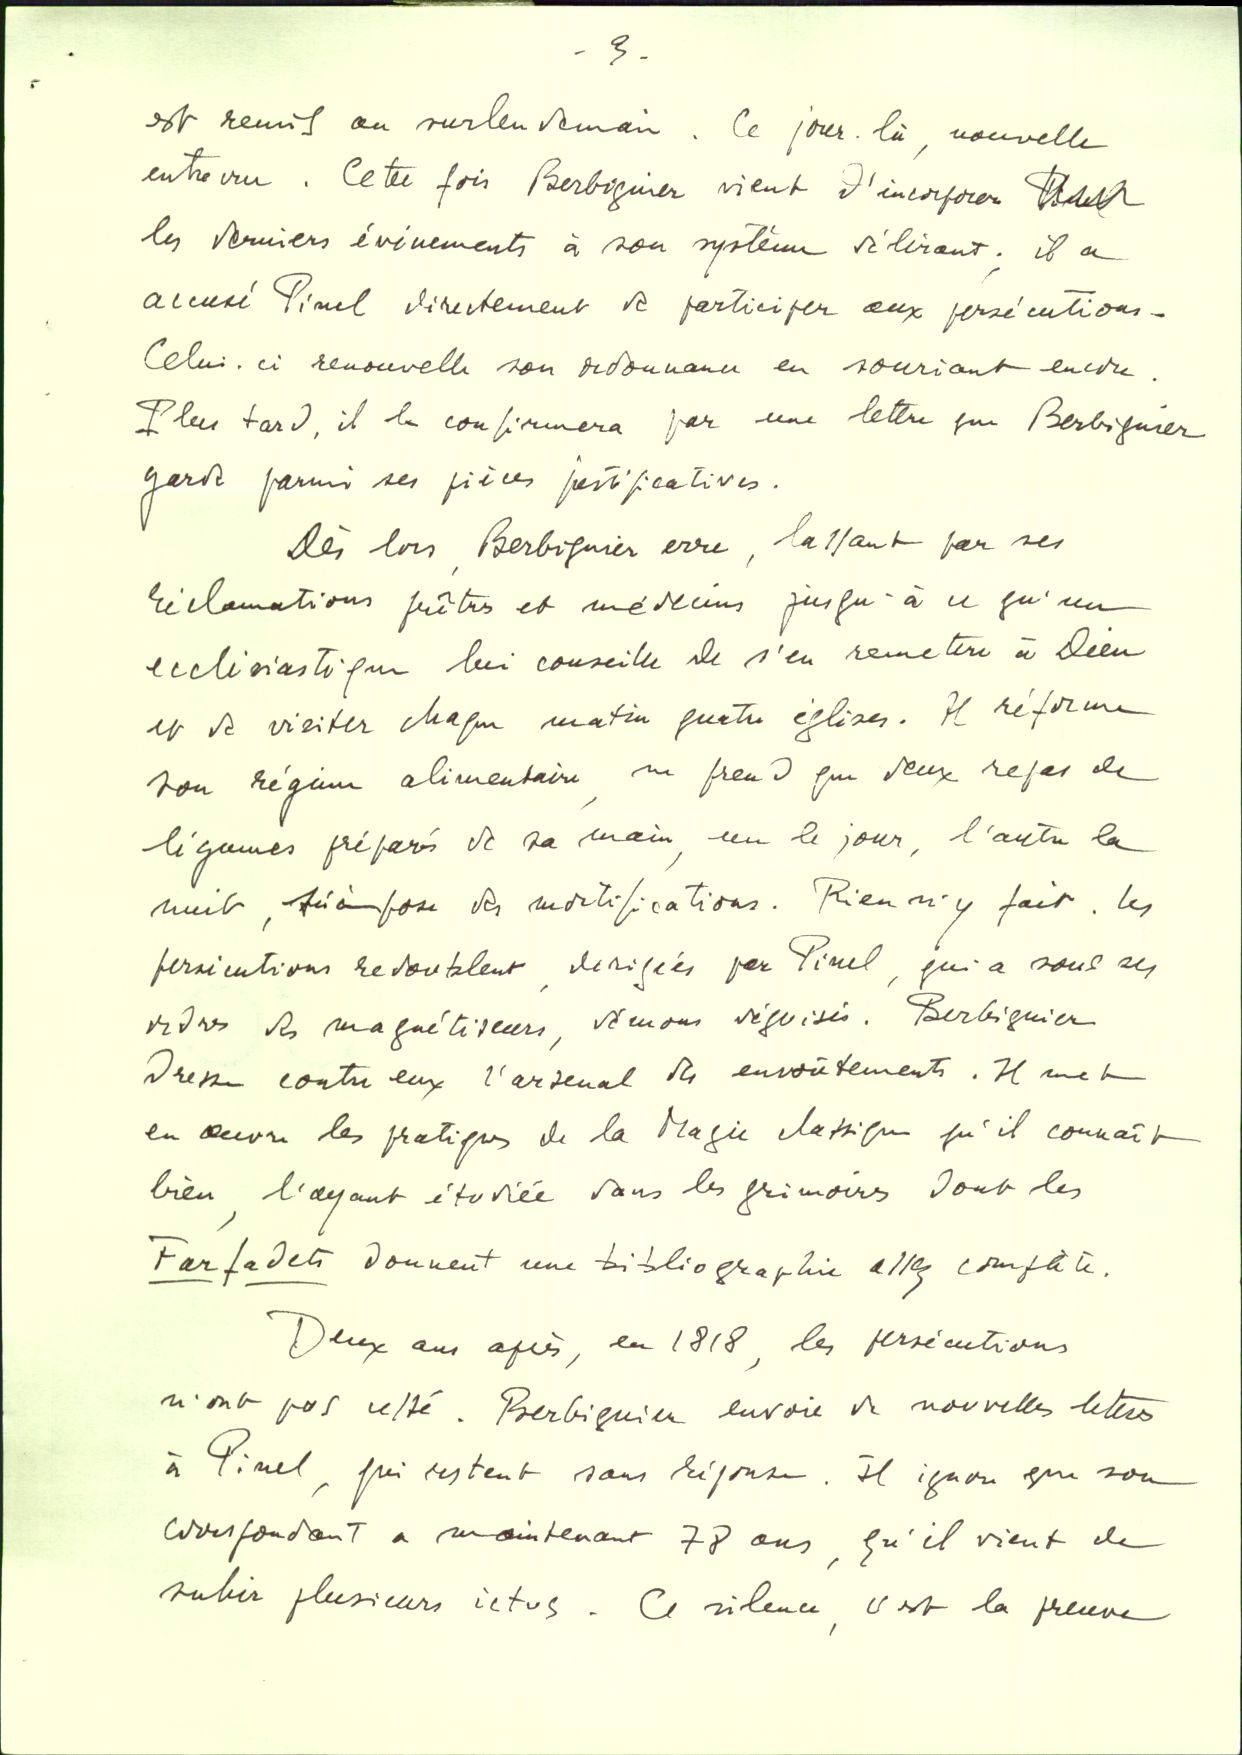 - 3 -
est remis au surlendemain. Ce jour-là, nouvelle
entrevue. Cette fois Berbiguier vient d'incorporer
les derniers événements à son système délirant ; il a
accusé Pinel directement de participer aux persécutions.
Celui-ci renouvelle son ordonnance en souriant encore.
Plus tard, il la confirmera par une lettre que Berbiguier
garde parmi ses pièces justificatives.
Dès lors, Berbiguier erre, lassant par ses
réclamations prêtres et médecins jusqu'à ce qu'un
ecclésiastique lui conseille de s'en remettre à Dieu
et de visiter chaque matin quatre églises. Il réforme
son régime alimentaire, ne prend que deux repas de
légumes préparés de sa main, un le jour, l'autre la
nuit, s'impose des mortifications. Rien n'y fait. Les
persécutions redoublent, dirigées par Pinel, qui a sous ses
ordres des magnétiseurs, démons déguisés. Berbiguier
dresse contre eux l'arsenal des envoûtements. Il met
en œuvre les pratiques de la Magie classique qu'il connaît
bien, l'ayant étudiée dans les grimoires dont les
Farfadets donnent une bibliographie assez complète.
Deux ans après, en 1818, les persécutions
n'ont pas cessé. Berbiguier envoie de nouvelles lettres
à Pinel, qui restent sans réponse. Il ignore que son
correspondant a maintenant 78 ans, qu'il vient de
subir plusieurs ictus. Ce silence, c'est la preuve